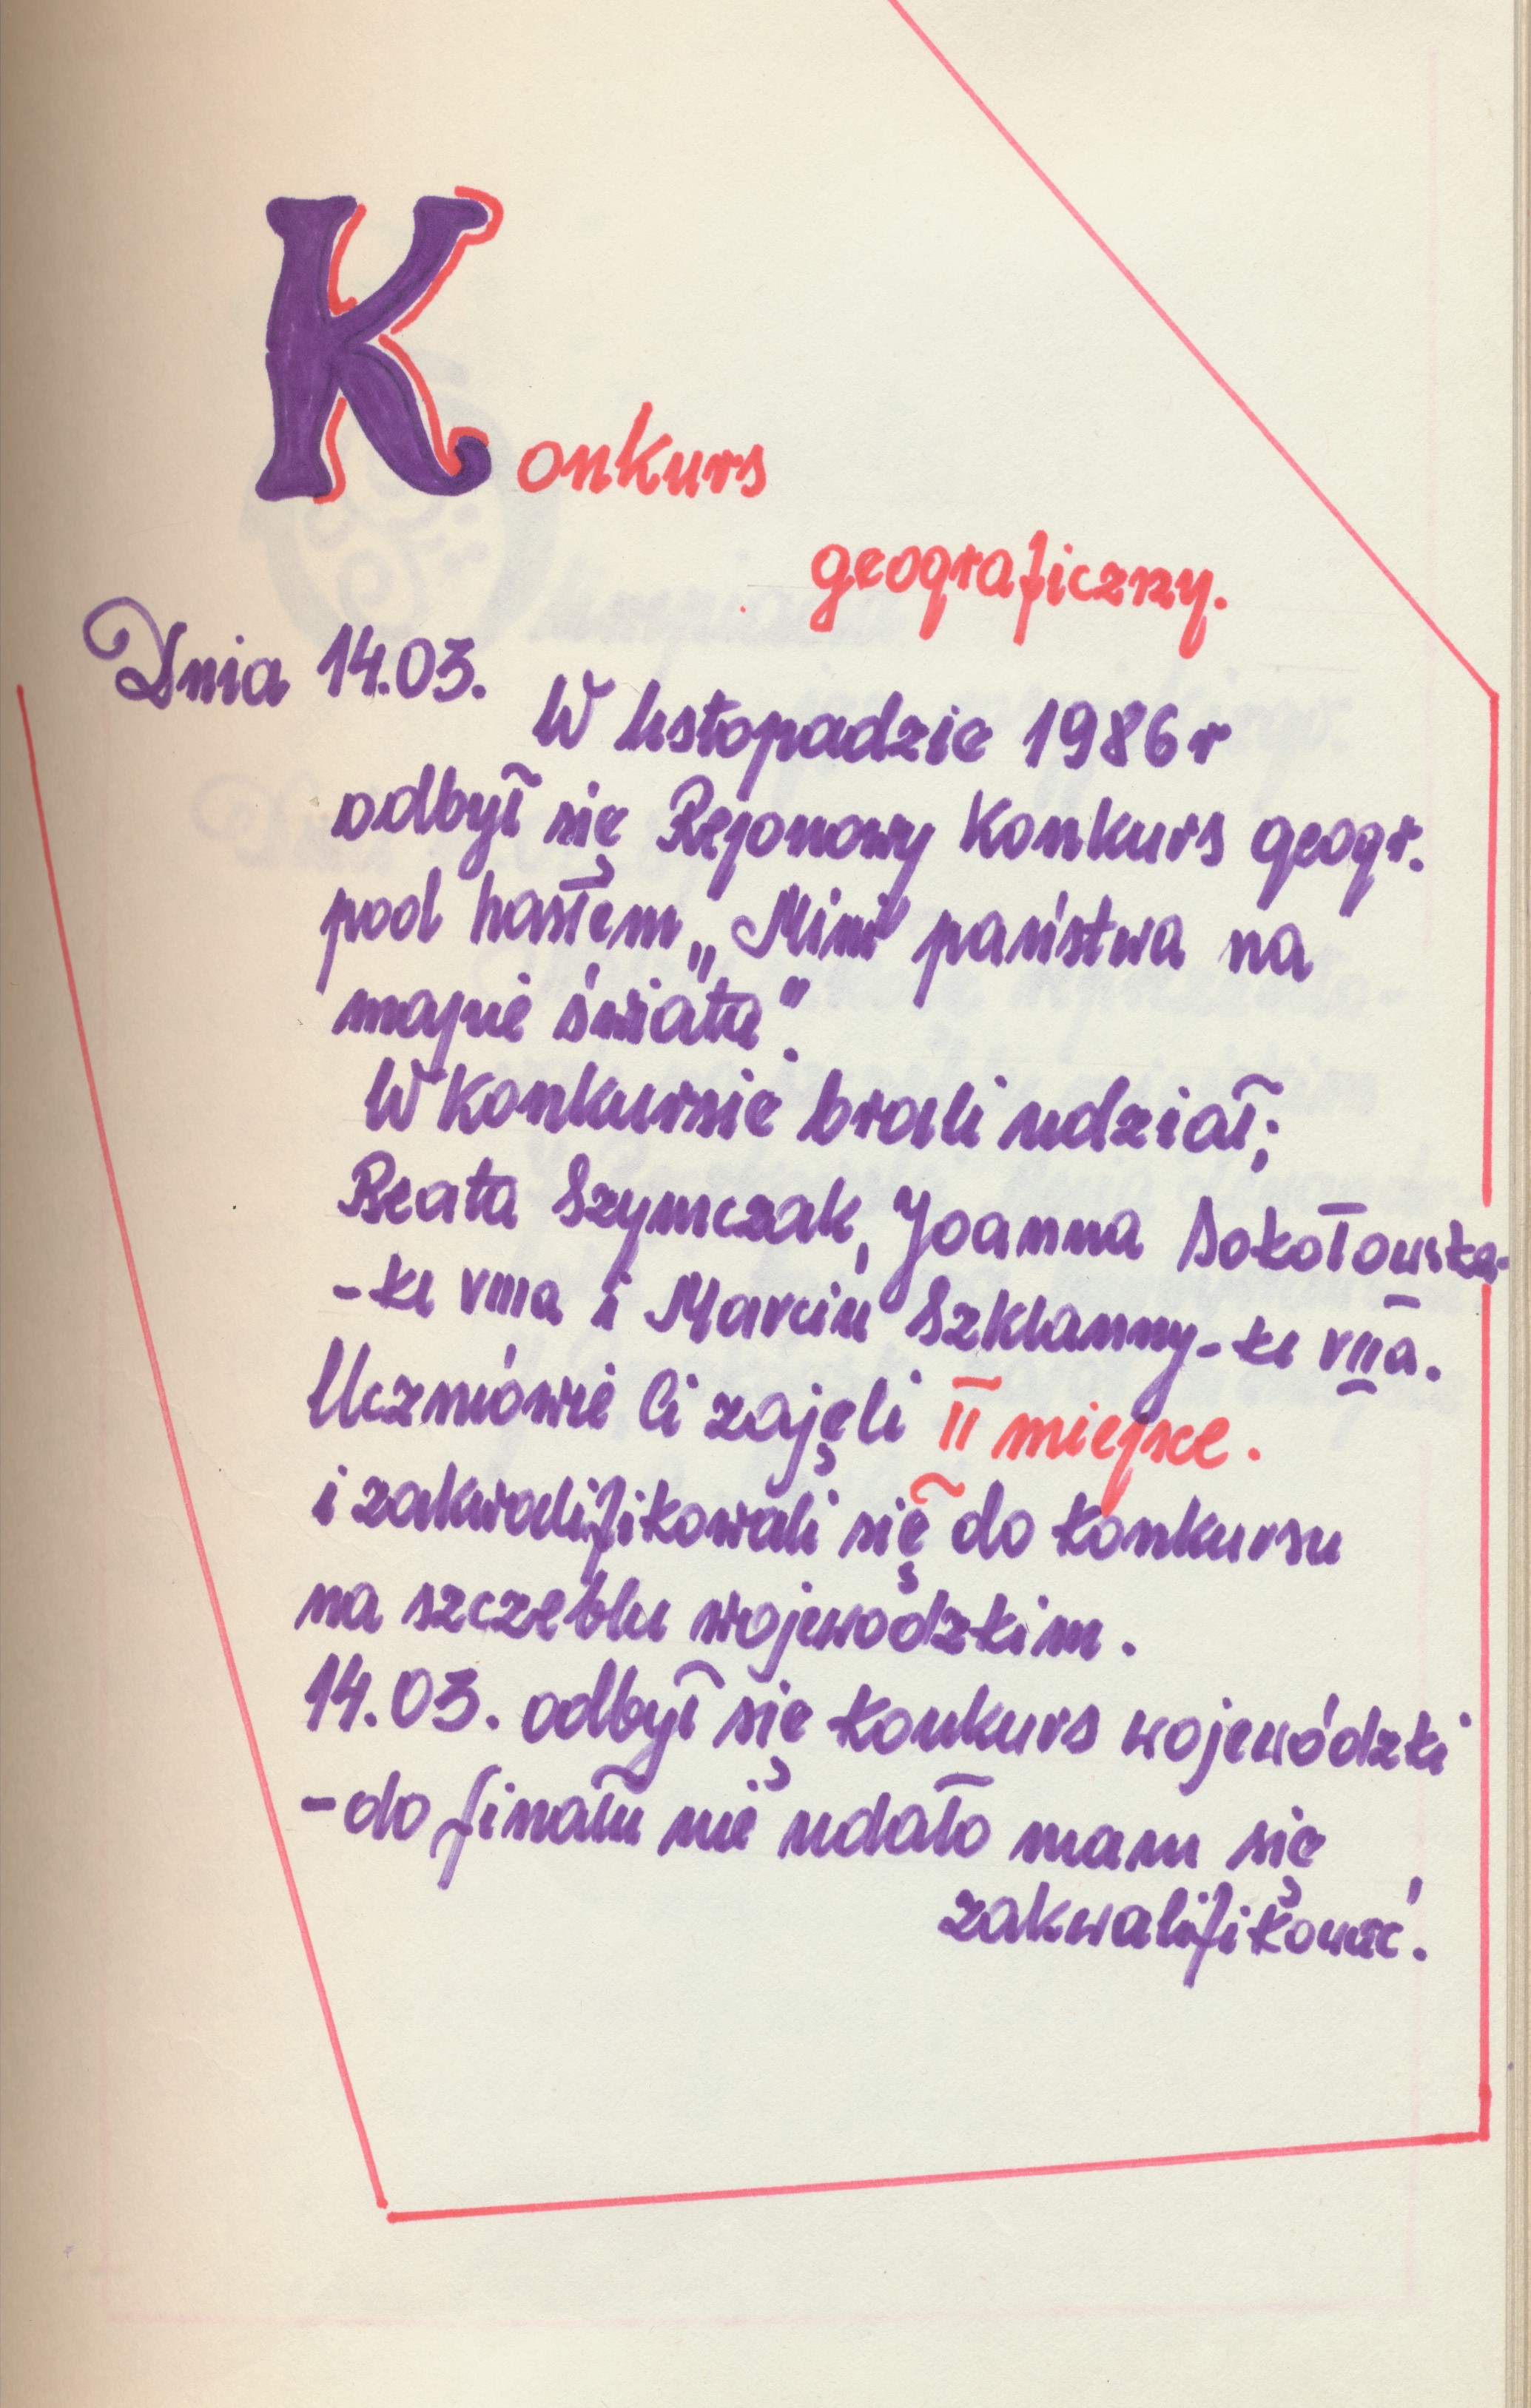 Konkurs
geograficzny.
Dnia 14.03.
W listopadzie 1986 r
odbył się Rejonowy Konkurs geogr.
pod hasłem „Mini państwa na
mapie świata".
W Konkursie brali udział;
Beata Szymczak, Joanna Sokołowska-
-kl VIIIa i Marcin Szklanny-kl VIIa.
Uczniowie Ci zajęli II miejsce.
i zakwalifikowali się do konkursu
na szczeblu wojewódzkim.
14.03. odbył się konkurs wojewódzki
-do finału nie udało nam się
zakwalifikować.